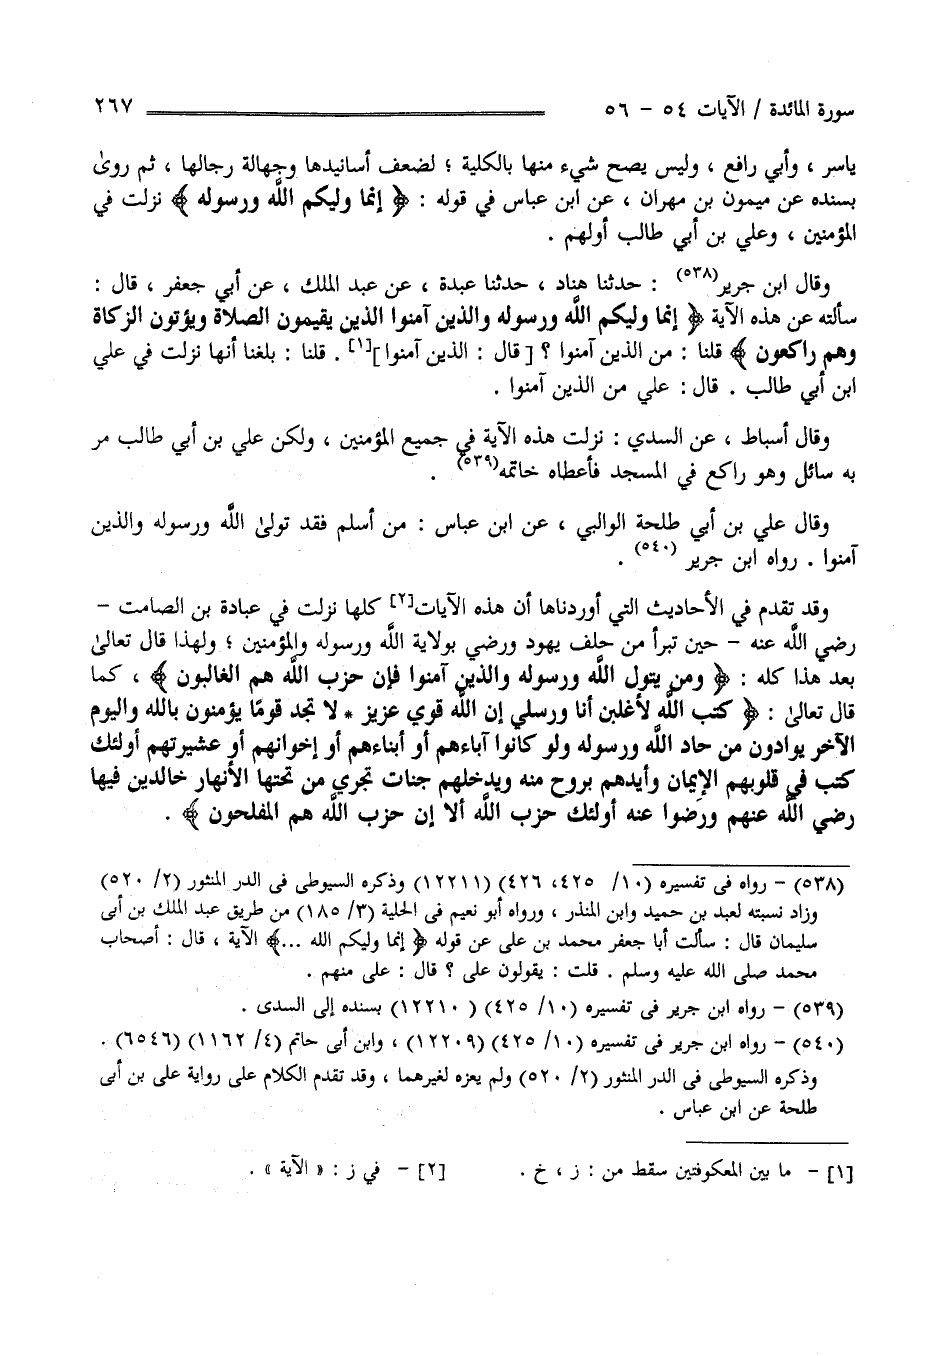 سورة المائدة / الآيات ٥٤ - ٥٦ ٢٦٧
ياسر ، وأبي رافع ، وليس يصح شيء منها بالكلية ؛ لضعف أسانيدها وجهالة رجالها ، ثم روىٰ
بسنده عن ميمون بن مهران ، عن ابن عباس في قوله : ﴿ إنما وليكم اللَّه ورسوله ﴾ نزلت في
المؤمنين ، وعلي بن أبي طالب أولهم .
وقال ابن جرير(٥٣٨) : حدثنا هناد ، حدثنا عبدة ، عن عبد الملك ، عن أبي جعفر ، قال :
سألته عن هذه الآية ﴿ إنما وليكم اللَّه ورسوله والذين آمنوا الذين يقيمون الصلاة ويؤتون الزكاة
وهم راكعون ﴾ قلنا : من الذين آمنوا ؟ [ قال : الذين آمنوا ][١] . قلنا : بلغنا أنها نزلت في علي
ابن أبي طالب . قال : علي من الذين آمنوا .
وقال أسباط ، عن السدي : نزلت هذه الآية في جميع المؤمنين ، ولكن علي بن أبي طالب مر
به سائل وهو راكع في المسجد فأعطاه خاتمه(٥٣٩) .
وقال علي بن أبي طلحة الوالبي ، عن ابن عباس : من أسلم فقد تولىٰ اللَّه ورسوله والذين
آمنوا . رواه ابن جرير (٥٤٠) .
وقد تقدم في الأحاديث التي أوردناها أن هذه الآيات[٢] كلها نزلت في عبادة بن الصامت -
رضي اللَّه عنه - حين تبرأ من حلف يهود ورضي بولاية اللَّه ورسوله والمؤمنين ؛ ولهذا قال تعالىٰ
بعد هذا كله : ﴿ ومن يتول اللَّه ورسوله والذين آمنوا فإن حزب اللَّه هم الغالبون ﴾ ، كما
قال تعالىٰ : ﴿ كتب اللَّه لأغلبن أنا ورسلي إن اللَّه قوي عزيز * لا تجد قومًا يؤمنون بالله واليوم
الآخر يوادون من حاد اللَّه ورسوله ولو كانوا آباءهم أو أبناءهم أو إخوانهم أو عشيرتهم أولئك
كتب في قلوبهم الإيمان وأيدهم بروح منه ويدخلهم جنات تجري من تحتها الأنهار خالدين فيها
رضي اللَّه عنهم ورضوا عنه أولئك حزب اللَّه ألا إن حزب اللَّه هم المفلحون ﴾ .
(٥٣٨) - رواه فى تفسيره (١٠/ ٤٢٥، ٤٢٦) (١٢٢١١) وذكره السيوطى فى الدر المنثور (٢/ ٥٢٠)
وزاد نسبته لعبد بن حميد وابن المنذر ، ورواه أبو نعيم فى الحلية (٣/ ١٨٥) من طريق عبد الملك بن أبى
سليمان قال : سألت أبا جعفر محمد بن على عن قوله ﴿ إنما وليكم الله ...﴾ الآية ، قال : أصحاب
محمد صلى الله عليه وسلم . قلت : يقولون على ؟ قال : على منهم .
(٥٣٩) - رواه ابن جرير فى تفسيره (١٠/ ٤٢٥) ( ١٢٢١٠) بسنده إلى السدى .
(٥٤٠) - رواه ابن جرير فى تفسيره (١٠/ ٤٢٥) (١٢٢٠٩) ، وابن أبى حاتم (٤/ ١١٦٢) (٦٥٤٦) .
وذكره السيوطى فى الدر المنثور (٢/ ٥٢٠) ولم يعزه لغيرهما ، وقد تقدم الكلام على رواية على بن أبى
طلحة عن ابن عباس .
[١] - ما بين المعكوفتين سقط من : ز ، خ . [٢] - في ز : « الآية » .